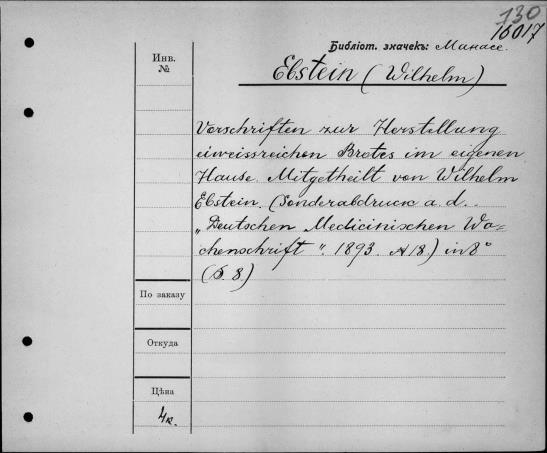 130
16017
Библіот. значекъ: Манасе.
Инв.
№
Ebstein (Wilhelm)
Vorschriften zur Herstellung
eiweissreichen Brotes im eigenen
Hause. Mitgetheilt von Wilhelm
Ebstein. (Sonderabdruck a. d.
„Deutschen Medicinischen Wo-
chenschrift". 1893. №18.) in 8°
(S. 8.)
По заказу
Откуда
Цѣна
4к.